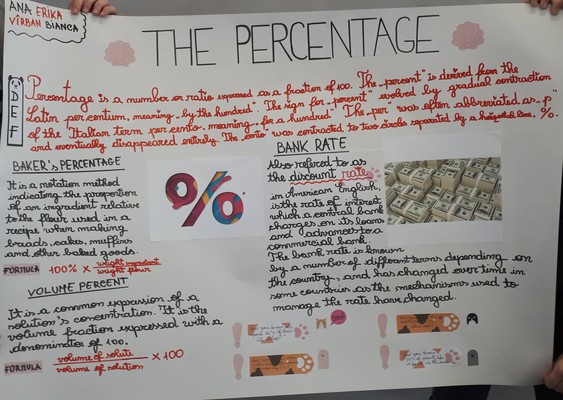 ANA ERIKA
VÎRBAN BIANCA
THE PERCENTAGE
DEF
Percentage is a number or ratio expressed as a fraction of 100. The „percent" is derived from the
Latin per centum, meaning „by the hundred". The sign for „percent" evolved by gradual contraction
of the Italian term per cento, meaning „for a hundred" The „per" was often abbreviated as „p"
and eventually disappeared entirely. The „cento" was contracted to two circles separated by a horizontal line, %.
BAKER'S PERCENTAGE
It is a notation method
indicating the proportion
of an ingredient relative
to the flour used in a
recipe when making
breads, cakes, muffins
and other baked goods.
FORMULA 100% × weight ingredient
weight flour
VOLUME PERCENT
It is a common expression of a
solution's concentration. It is the
volume fraction expressed with a
denominator of 100.
FORMULA volume of solute × 100
volume of solution
%
BANK RATE
Also referred to as
the discount rate
in American English,
is the rate of interest
which a central bank
charges on its loans
and advances to a
commercial bank.
The bank rate is known
by a number of different terms depending on
the country, and has changed over time in
some countries as the mechanisms used to
manage the rate have changed.